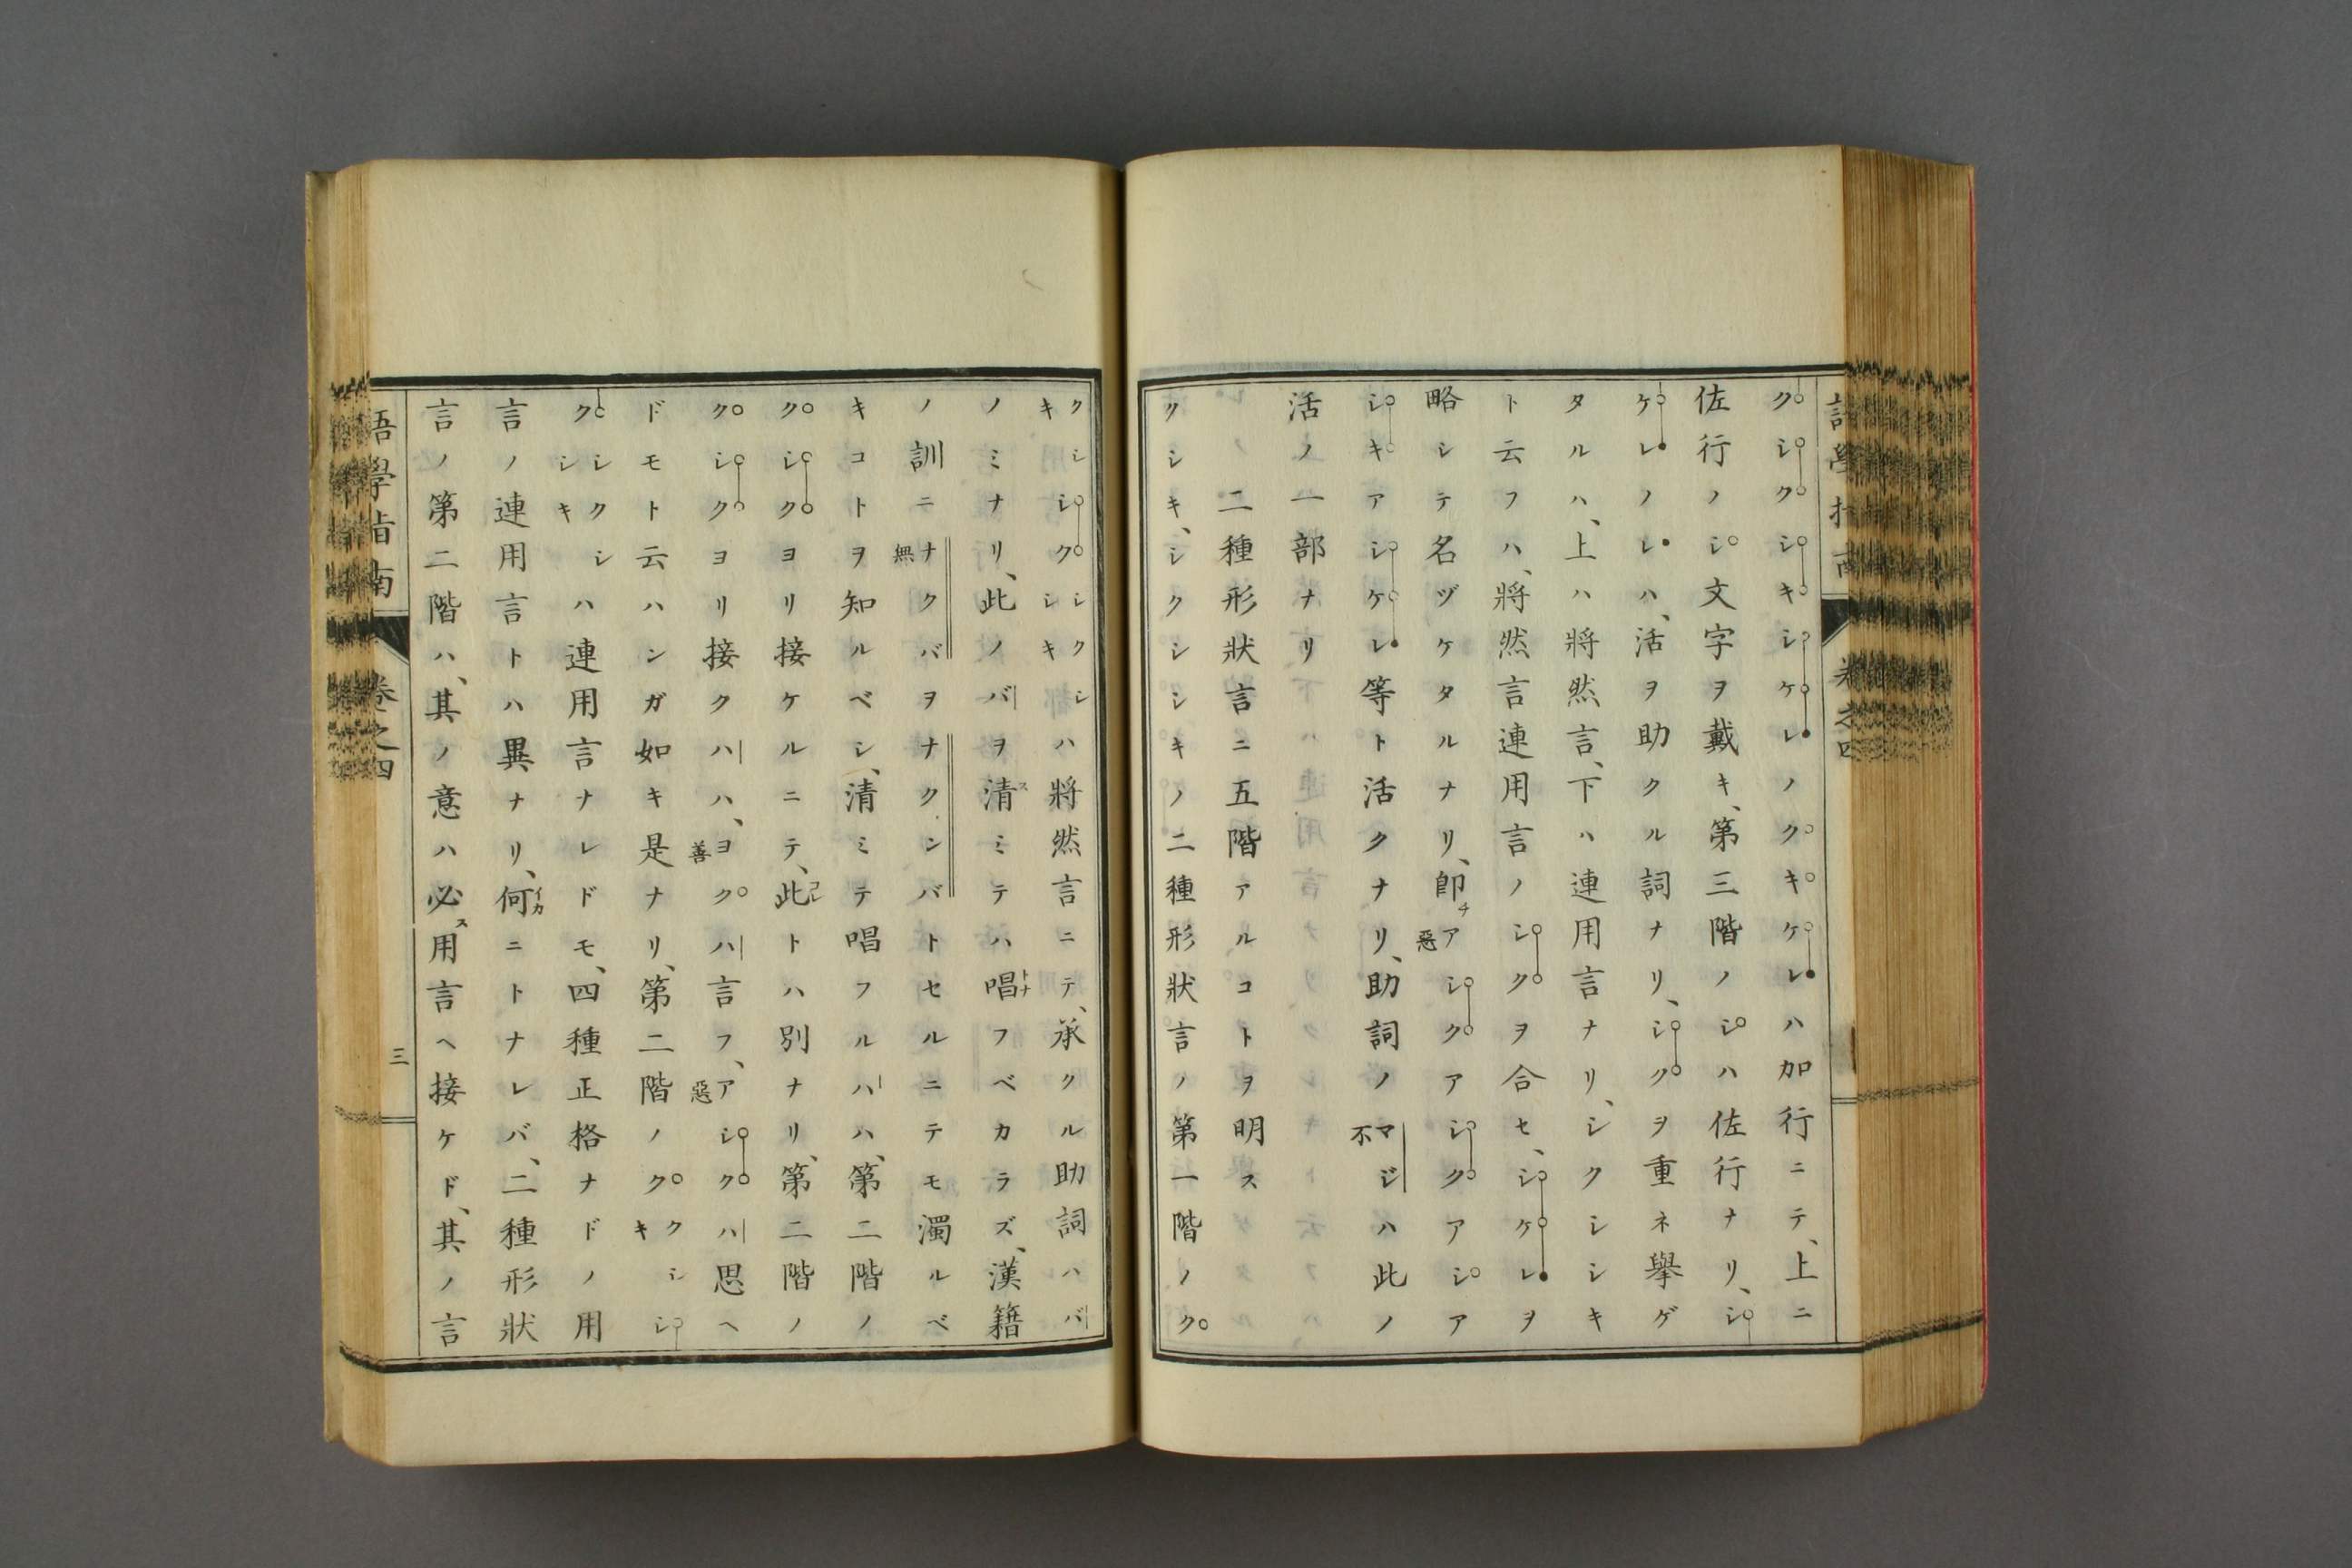 語學指南
卷之四
クシクシキシケレノクキケレハ加行ニテ、上ニ
佐行ノシ文字ヲ戴キ、第三階ノシハ佐行ナリ、シ
ケレノレハ、活ヲ助クル詞ナリ、シクヲ重ネ擧ゲ
タルハ、上ハ將然言、下ハ連用言ナリ、シクシシキ
ト云フハ、將然言連用言ノシクヲ合セ、シケレヲ
略シテ名ヅケタルナリ、卽チアシ惡クアシクアシア
シキアシケレ等ト活クナリ、助詞ノマジ不ハ此ノ
活ノ一部ナリ
二種形狀言ニ五階アルコトヲ明ス
クシキ、シクシシキノ二種形狀言ノ第一階ノク
クシキシクシクシシキハ將然言ニテ、承クル助詞ハバ
ノミナリ、此ノバヲ清ミテハ唱フベカラズ、漢籍
ノ訓ニナクバ無ヲナクンバトセルニテモ濁ルベ
キコトヲ知ルベシ、清ミテ唱フルハハ、第二階ノ
クシクヨリ接ケルニテ、此トハ別ナリ、第二階ノ
クシクヨリ接クハハ、ヨク善ハ言フ、アシク惡ハ思ヘ
ドモト云ハンガ如キ是ナリ、第二階ノククシキシ
クシクシキシハ連用言ナレドモ、四種正格ナドノ用
言ノ連用言トハ異ナリ、何ニトナレバ、二種形狀
言ノ第二階ハ、其ノ意ハ必ス用言ヘ接ケド、其ノ言
語學指南
卷之四
三